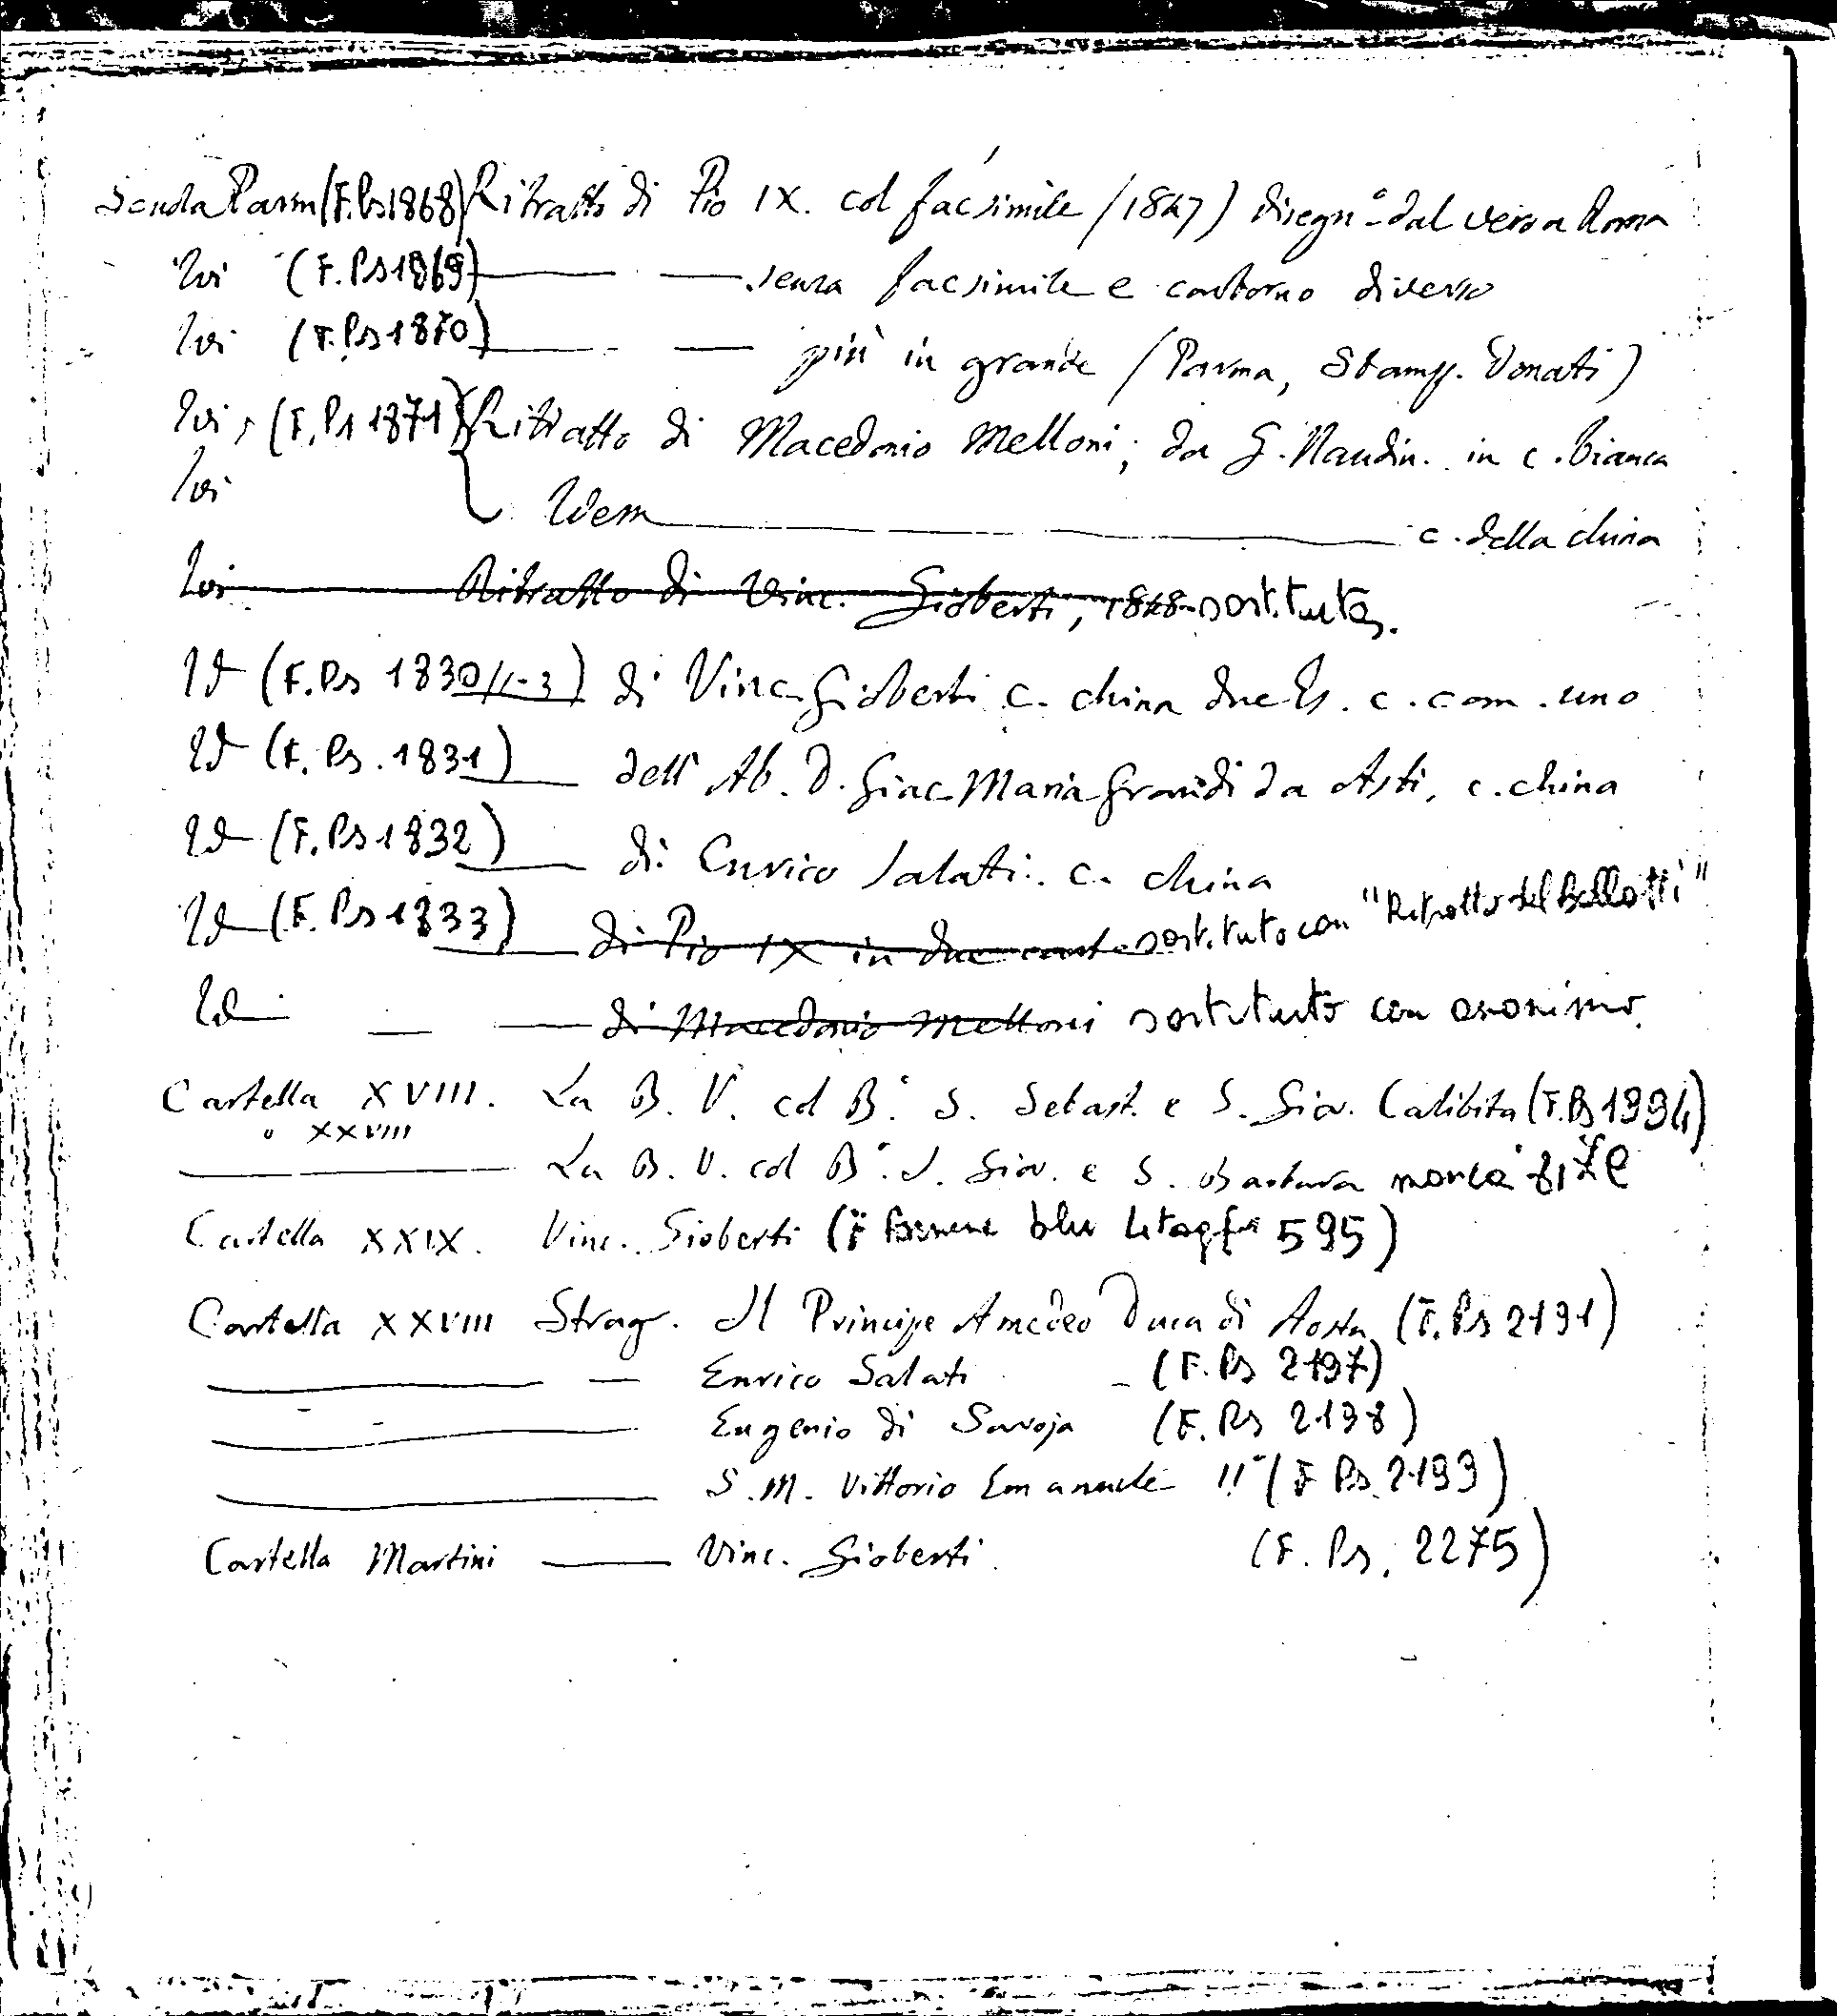 Scuola Parm (F.Ps 1868) Ritratto di Pio IX. col facsimile (1847) disegn° dal vero a Roma
Ivi (F.Ps 1869) — — senza facsimile e contorno diverso
Ivi (F.Ps 1870) — — più in grande (Parma, Stamp. Donati)
Ivi, (F.Ps 1871) Ritratto di Macedonio Melloni, da G. Naudin. in c. bianca
Ivi Idem — c. della china
Ivi Ritratto di Vinc. Gioberti, 1848 sostituto.
Id (F.Ps 1830/1-3) di Vinc. Gioberti c. china due Es. c. com. uno
Id (F.Ps. 1831) — dell' Ab. D. Giac. Maria Grandi da Asti, c. china
Id (F.Ps 1832) — di Enrico Salati. c. china
Id (F.Ps 1833) — di Pio IX in due cart. sostituto con "Ritratto del Bellotti"
Id — — di Macedonio Melloni sostituito con anonimo.
Cartella XVIII. La B. V. col B.° S. Sebast. e S. Giov. Calibita (F.Ps 1994)
o XXVIII
— La B. V. col B.° S. Giov. e S. Barbara manca
Cartella XXIX. Vinc. Gioberti ( blu 595)
Cartella XXVIII Strag. Il Principe Amedeo Duca di Aosta (F.Ps 2191)
— — Enrico Salati — (F.Ps 2197)
— Eugenio di Savoja (F.Ps 2198)
— S.M. Vittorio Emanuele II° (F Ps 2199)
Cartella Martini — Vinc. Gioberti. (F. Ps. 2275)